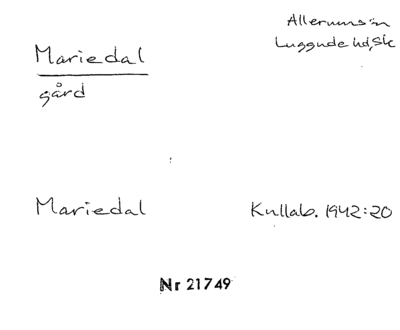 Allerums sn
Luggude hd, Sk
Mariedal
gård
Mariedal Kullab. 1942:20
Nr 21749